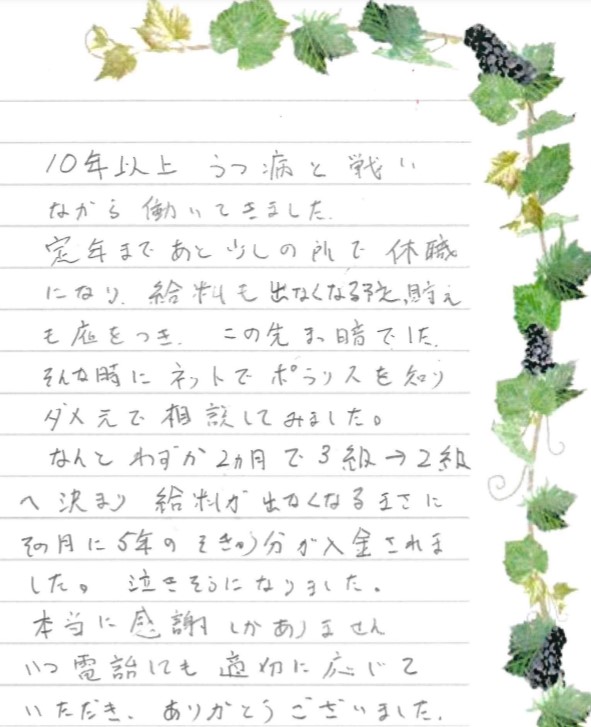 10年以上 うつ病と戦い
ながら働いてきました.
定年まであと少しの所で休職
になり、給料も出なくなる予定,貯え
も底をつき、この先まっ暗でした.
そんな時にネットでポラリスを知り
ダメ元で相談してみました。
なんとわずか2ヵ月で3級→2級
へ決まり給料が出なくなるまさに
その月に5年のそきゅう分が入金されま
した。泣きそうになりました。
本当に感謝しかありません
いつ電話にても適切に応じて
いただき、ありがとうございました.